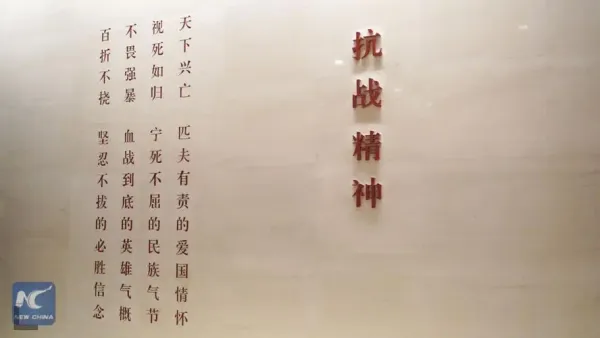 抗战精神
天下兴亡 匹夫有责的爱国情怀
视死如归 宁死不屈的民族气节
不畏强暴 血战到底的英雄气概
百折不挠 坚忍不拔的必胜信念
NEW CHINA